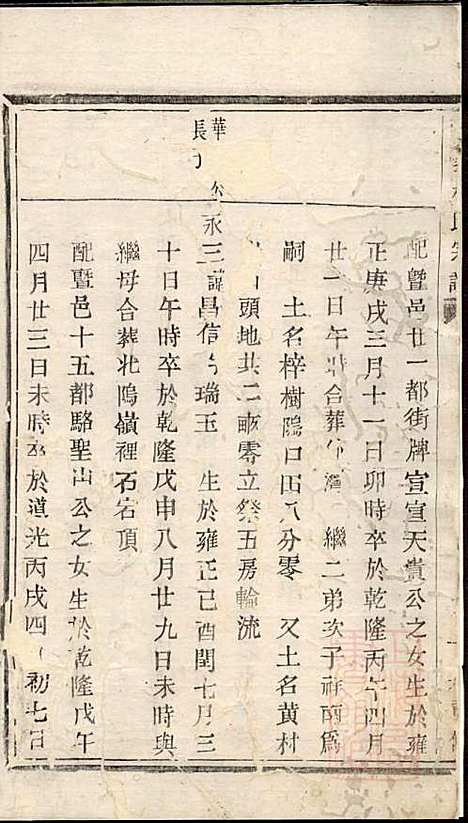 配暨邑廿一都街牌宣宣天貴公之女生於雍
正庚戌三月十一日卯時卒於乾隆丙午四月
廿一日午時合葬 繼二弟次子 爲
嗣 土名梓樹隖口田八分零 又土名黄村
頭地共二畝零立祭五房輪流
華
長子
永三諱昌信 瑞玉 生於雍正己酉閏七月三
十日午時卒於乾隆戊申八月廿九日未時與
繼母合葬北塢嶺裡石宕頂
配暨邑十五都駱聖山公之女生於乾隆戊午
四月廿三日未時卒於道光丙戌四 初七日